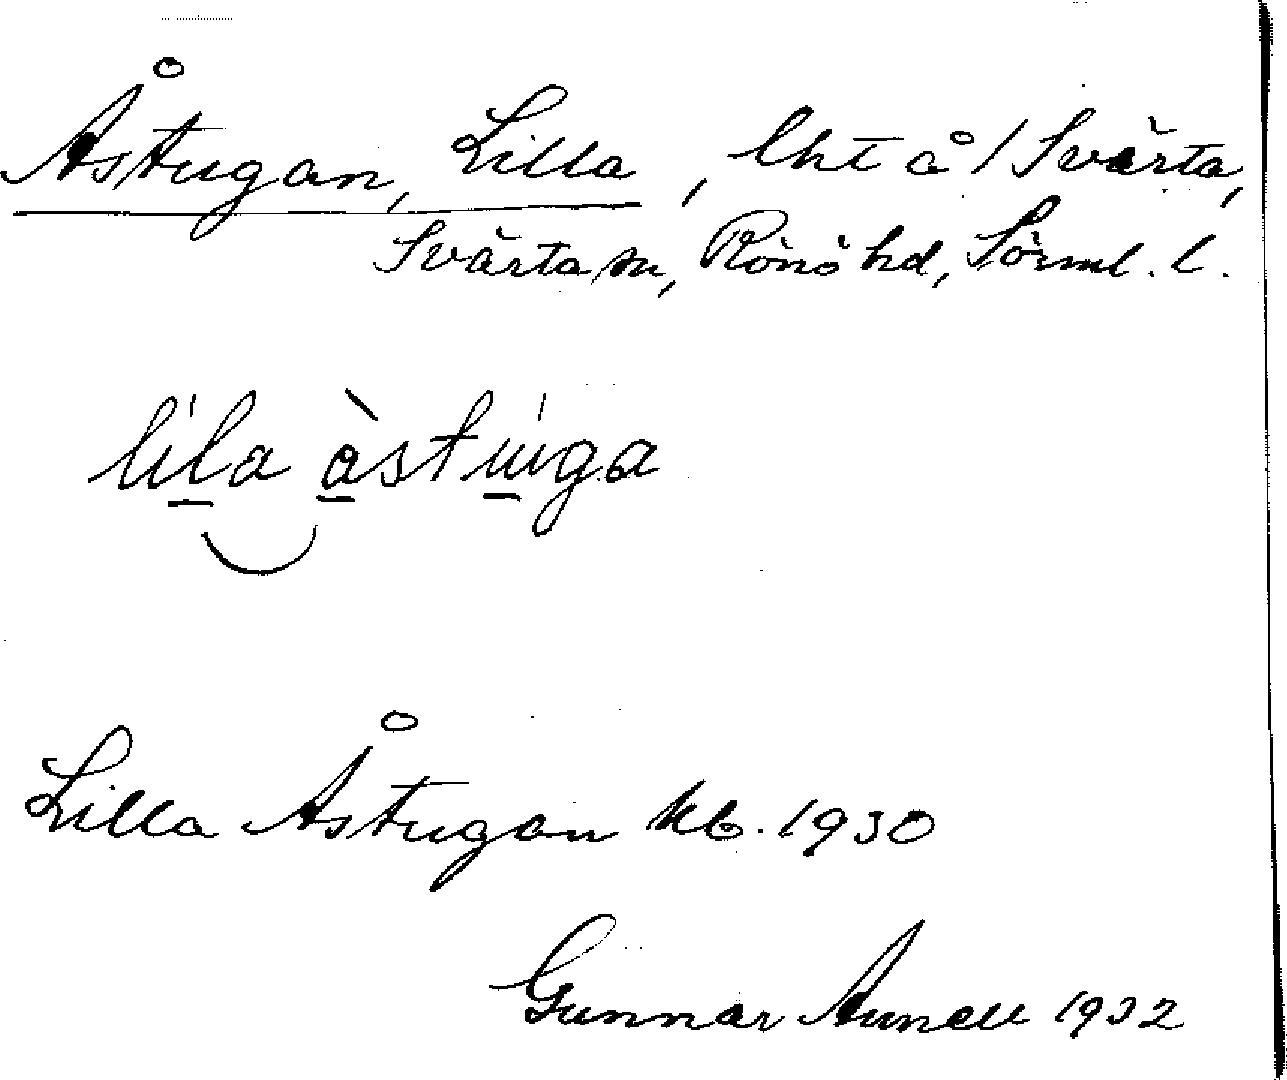 Åstugan, Lilla, lht å/Svärta,
Svärta sn, Rönö hd, Sörml. l.
lila åstuga
Lilla Åstugan kb. 1930
Gunnar Aunell 1932